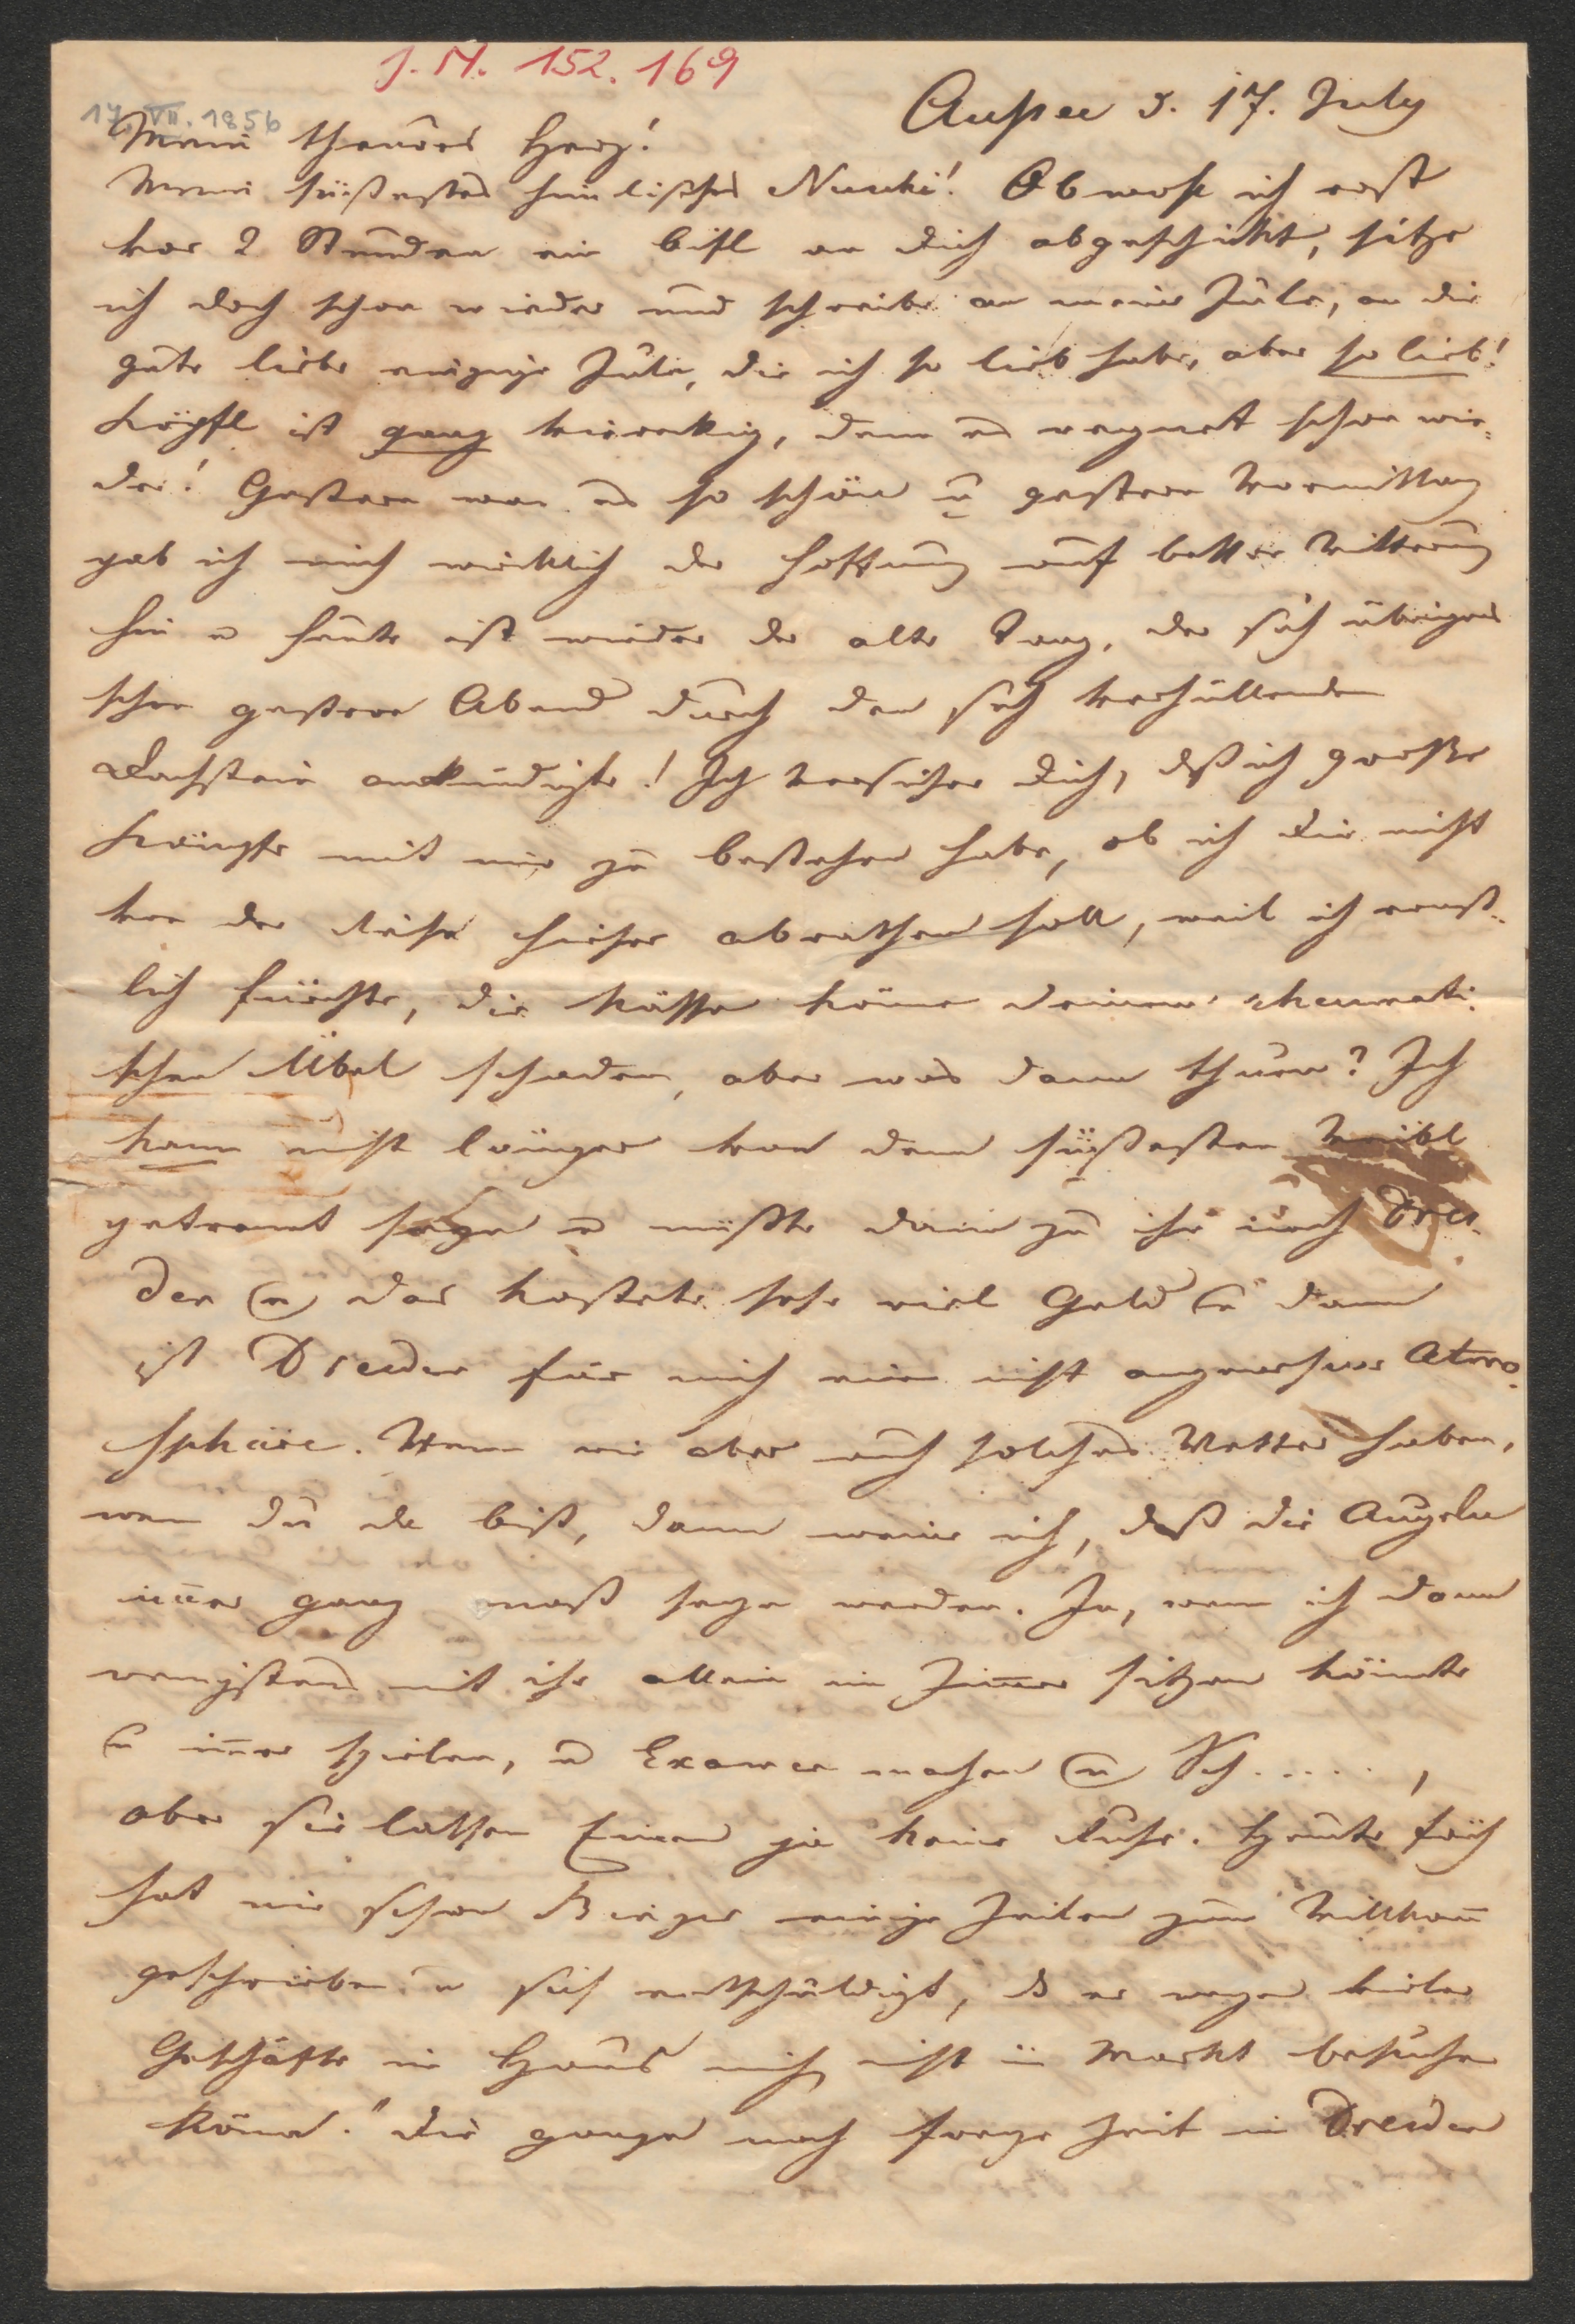 J. N. 152.169
17. VII. 1856
Aussee d. 17. July
Mein theures Herz!
Mein süßestes himlisches Nuschi! Obwohl ich erst
vor 2 Stunden ein bißl an dich abgeschickt, sitze
ich doch schon wieder und schreibe an meine Jule, an die
gute liebe einzige Jule, die ich so lieb habe, aber so lieb!
Köpfl ist ganz viereckig, denn es regnet schon wie-
der! Gestern war es so schön u gestern Vormittag
gab ich mich wirklich der Hoffnung auf bessere Witterung
hin u heute ist wieder der alte Tanz, der sich übrigens
schon gestern Abend durch den sich verhüllenden
Dachstein ankündigte! Ich versichere dich, dß ich große
Kämpfe mit mir zu bestehen habe, ob ich dir nicht
von der Reise hieher abrathen soll, weil ich ernst-
lich fürchte, die Nässe könne deinem rheumati-
schen Übel schaden, aber was dann thuen? Ich
kann nicht länger von dem süßesten Weibl
getrennt seyn u müßte dann zu ihr nach Dres-
den u das kostete sehr viel Geld u dann
ist Dresden für mich eine nicht angenehme Atmo-
sphäre. Wenn wir aber auch solches Wetter haben,
wen du da bist, dann weine ich, daß die Augeln
imer ganz naß seyn werden. Ja, wenn ich dann
wenigstens mit ihr allein im Zimer sitzen könnte
u imer spielen, u Examen machen u Sch.....,
aber sie lassen Einen ja keine Ruhe. Heute früh
hat mir schon Binzer einige Zeilen zum Willkom
geschrieben u sich entschuldigt, dß er wegen vieler
Geschäfte im Haus mich nicht im Markt besuchen
köne." Die ganze noch freye Zeit in Dresden